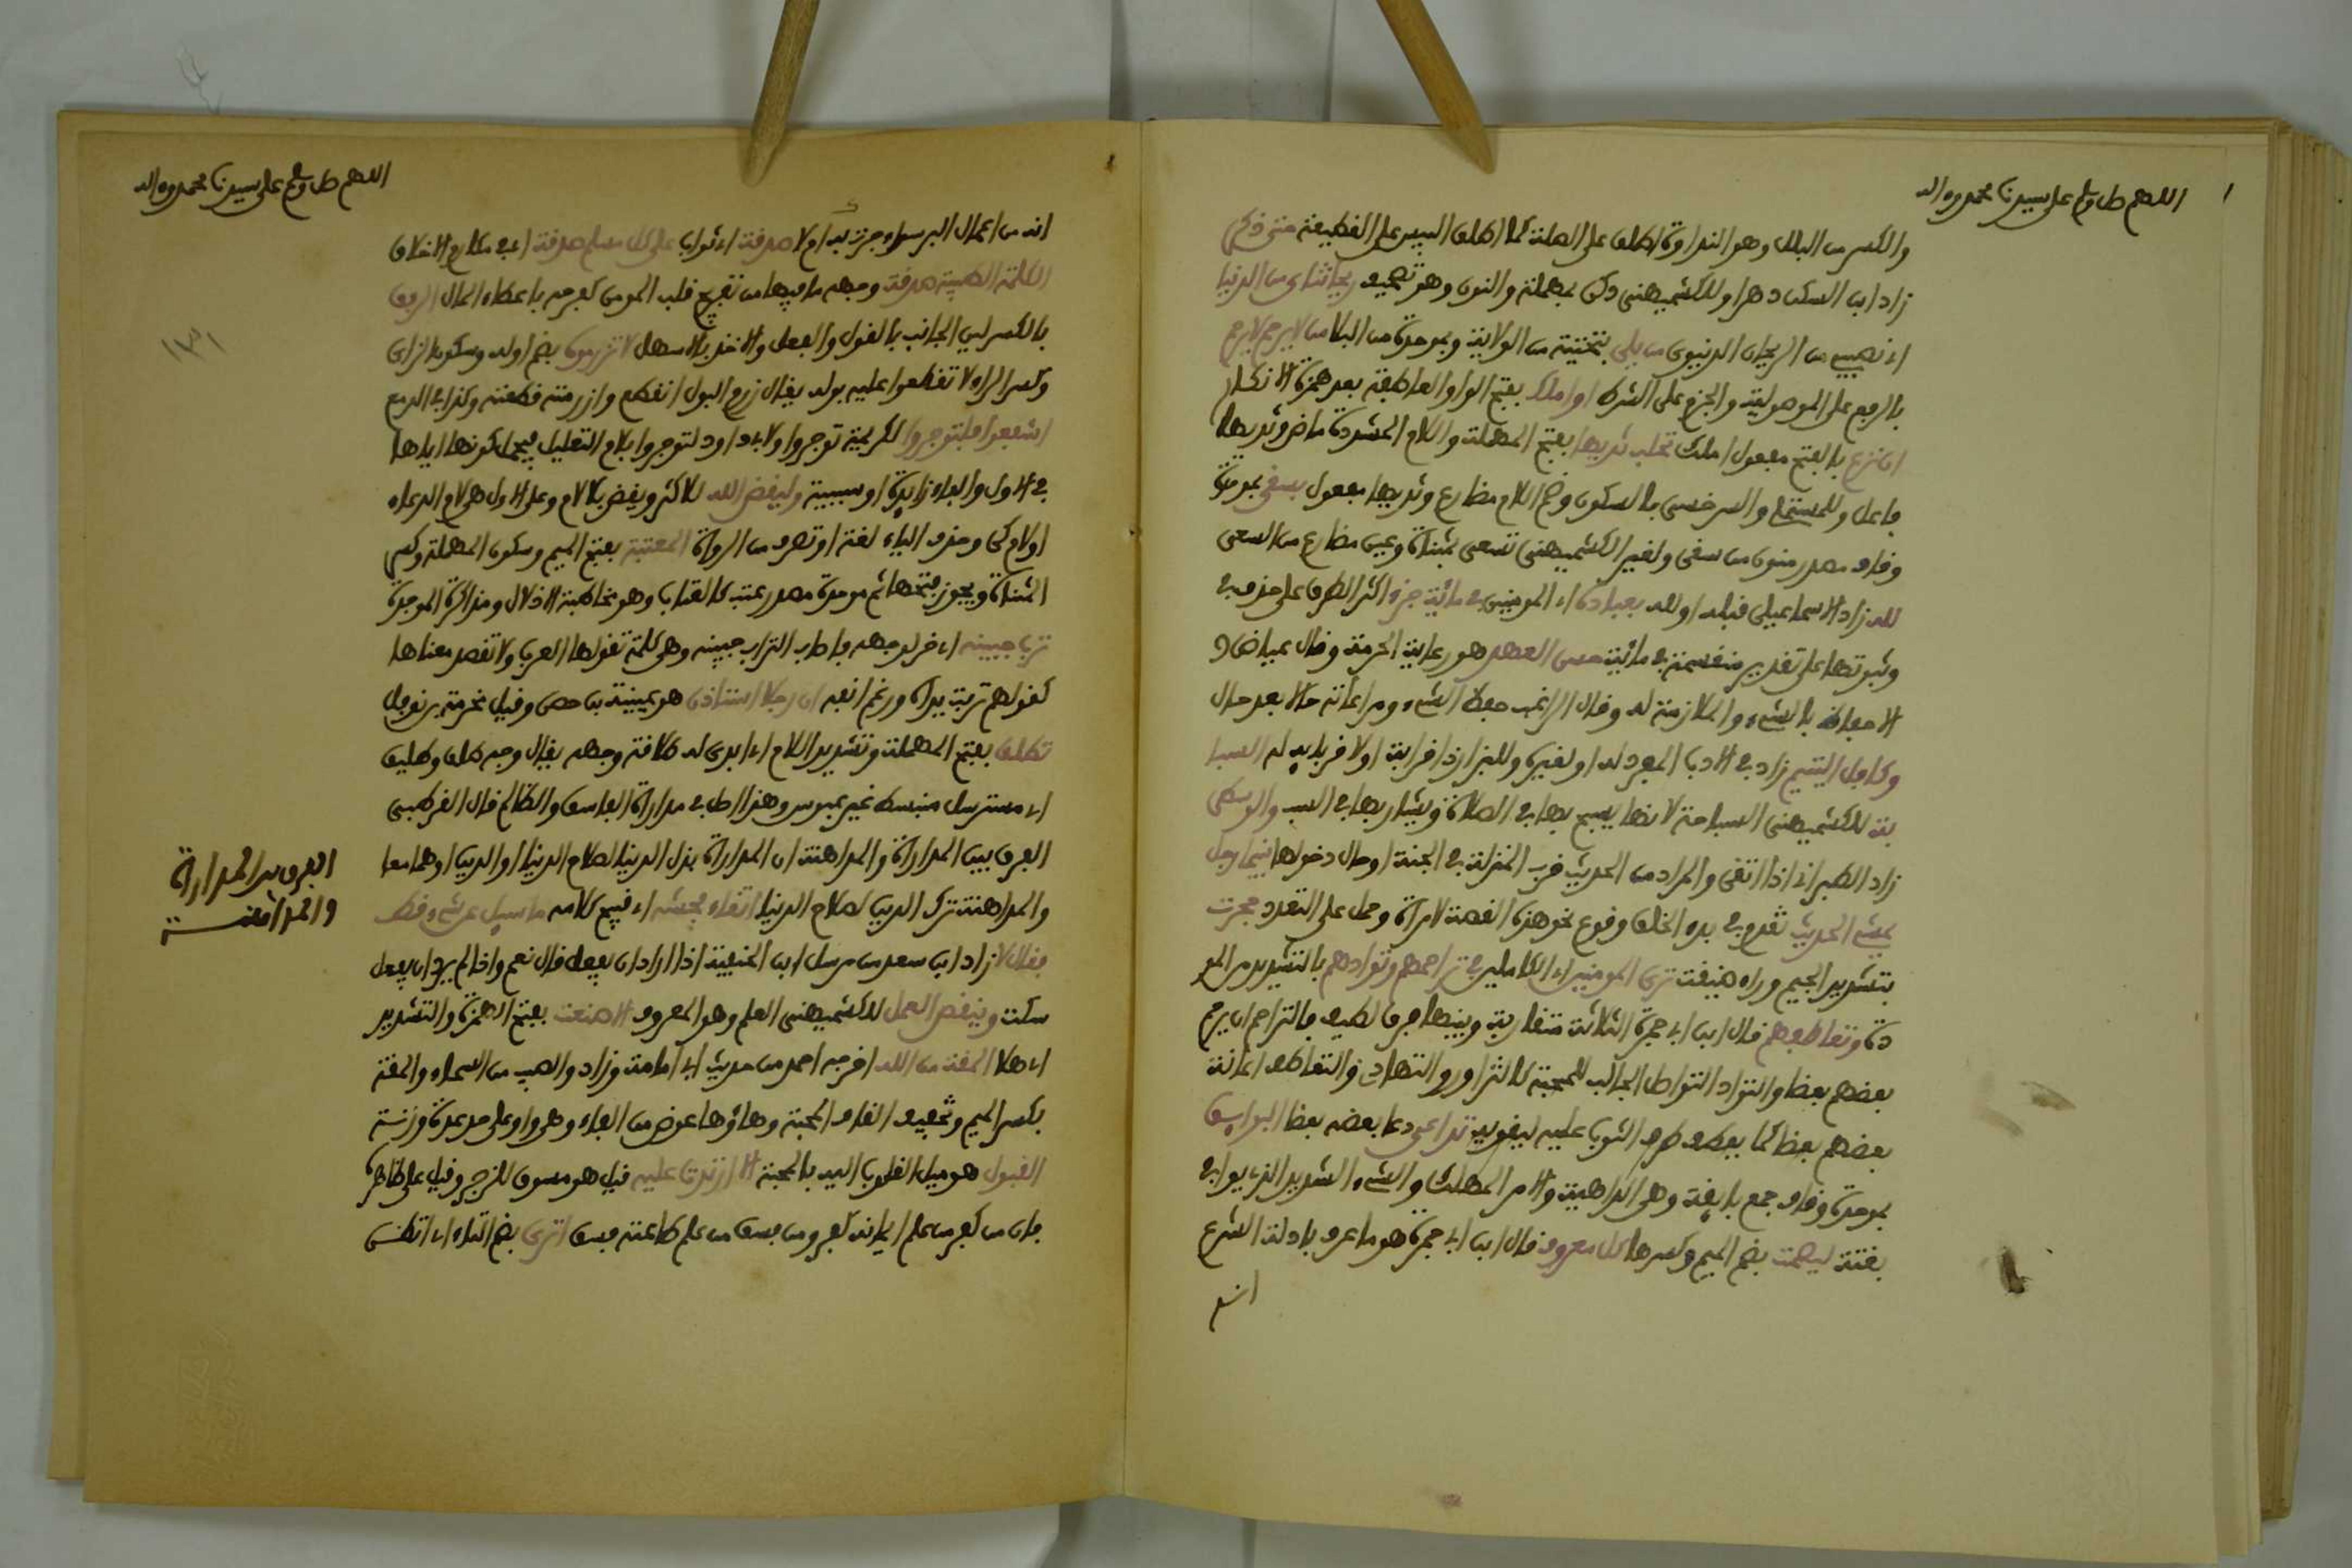 اللهم صل وسلم على سيدنا محمد وءاله
والكسر من البلل وهو النداوة اطلق على الصلة كما اطلق اليبس على القطيعة متى ذكر
زاد ابن السكن دهرا وللكشميهني ذكر بمهملة والنون وهو تصحيف ريحانتاي من الدنيا
اي نصيبي من الريحان الدنيوي من يلي بتحتية من الولاية وبموحدة من البلاء من لا يرحم لا يرحم
بالرفع على الموصولية والجزم على الشرط او املك بفتح الواو العاطفة بعد همزة الانكار
ان نزع بالفتح مفعول املك تحلب ثديها بفتح المهملة واللام المشددة ماض وثديها
فاعل وللمستملي والسرخسي بالسكون وضم اللام مضارع وثديها مفعول بسقي بموحدة
وقاف مصدر منون من سقى ولغير الكشميهني تسعى بمثناة وعين مضارع من السعي
لله زاد الاسماعيلي قبله او لله بعباده اي المومنين في مائة جزء اكثر الطرق على حذف في
وثبوتها على تقدير منقسمة في مائة حسن العهد هو رعاية الحرمة وقال عياض هو
الاحتفاظ بالشيء والملازمة له وقال الراغب حفظ الشيء ومراعاته حالا بعد حال
وكافل اليتيم زاد في الادب المفرد له او لغيره وللبزار ذا قرابة او لا قرابة له السبا
بة للكشميهني السباحة لانها يسبح بها في الصلاة ويشار بها في السب والوسطى
زاد الطبراني اذا اتقى والمراد من الحديث قرب المنزلة في الجنة او حال دخولها بينما رجل
يمشي الحديث تقدم في بدء الخلق وقوع نحو هذه القصة لامراة وحمل على التعدد حجرت
بتشديد الجيم وراء خفيفة ترى المومنين اي الكاملين في تراحمهم وتوادهم بالتشديد من المو
دة وتعاطفهم قال ابن ابي جمرة الثلاثة متقاربة وبينها فرق لطيف فالتراحم ان يرحم
بعضهم بعضا والتواد التواصل الجالب للمحبة كالتزاور والتهادي والتعاطف اعانة
بعضهم بعضا كما يعطف طرف الثوب عليه ليقويه تداعى دعا بعضه بعضا البوايق
بموحدة وقاف جمع بايقة وهي الداهية والامر المهلك والشيء الشديد الذي يوافي
بغتة ليصمت بضم الميم وكسرها كل معروف قال ابن ابي جمرة هو ما عرف بادلة الشرع
انه
اللهم صل وسلم على سيدنا محمد وءاله
انه من اعمال البر سواء جرت به ام لا صدقة اي ثواب على كل مسلم صدقة اي في مكارم الاخلاق
الكلمة الطيبة صدقة وجهه ما فيها من تفريح قلب المومن كفرحه باعطاء المال الرفق
بالكسر لين الجانب بالقول والفعل والاخذ بالاسهل لا تزرموه بضم اوله وسكون الزاي
وكسر الراء لا تقطعوا عليه بوله يقال زرم البول انقطع وازرمته قطعته وكذا في الدمع
اشفعوا فلتوجروا لكريمة توجروا ولابي داود لتوجروا بلام التعليل فيحمل كونها اياها
في الاول والفاء زايدة او سببية وليقض الله للاكثر ويقض بلا لام وعلى الاول هي لام الدعاء
او لام كي وحذف الياء لغة او تصرف من الرواة المعتبة بفتح الميم وسكون المهملة وكسر
المثناة ويجوز فتحها ثم موحدة مصدر عتب كالعتاب وهو مخاطبة الادلال ومذاكرة الموجدة
ترب جبينه اي خر لوجهه فاصاب التراب جبينه وهي كلمة تقولها العرب ولا تقصد معناها
كقولهم تربت يداه ورغم انفه ان رجلا استاذن هو عيينة بن حصن وقيل مخرمة بن نوفل
تطلق بفتح المهملة وتشديد اللام اي ابدى له طلاقة وجهه يقال وجه طلق وطليق
اي مسترسل منبسط غير عبوس وهذا اصل في مداراة الفاسق والظالم قال القرطبي
الفرق بين المداراة والمداهنة ان المداراة بذل الدنيا لصلاح الدنيا او الدين او هما معا
والمداهنة ترك الدين لصلاح الدنيا اتقاء فحشه اي قبيح كلامه ما سيل عن شيء قط
فقال لا زاد ابن سعد من مرسل ابن الحنفية اذا اراد ان يفعل قال نعم واذا لم يرد ان يفعل
سكت وينقص العمل للكشميهني العلم وهو المعروف الا صنعت بفتح الهمزة والتشديد
اي هلا المقة من الله اخرجه احمد من حديث ابي امامة وزاد والصيت من السماء والمقة
بكسر الميم وتخفيف القاف المحبة وهاؤها عوض من الفاء وهي واو على حد عدة وزنة
القبول هو ميل القلوب اليه بالمحبة الا ارتدت عليه قيل هو مسوق للزجر وقيل على ظاهره
فان من كفر من علم ايمانه كفر ومن فسق من علم طاعته فسق اترى بضم التاء اي اتظنني
الفرق بين المداراة
والمداهنة